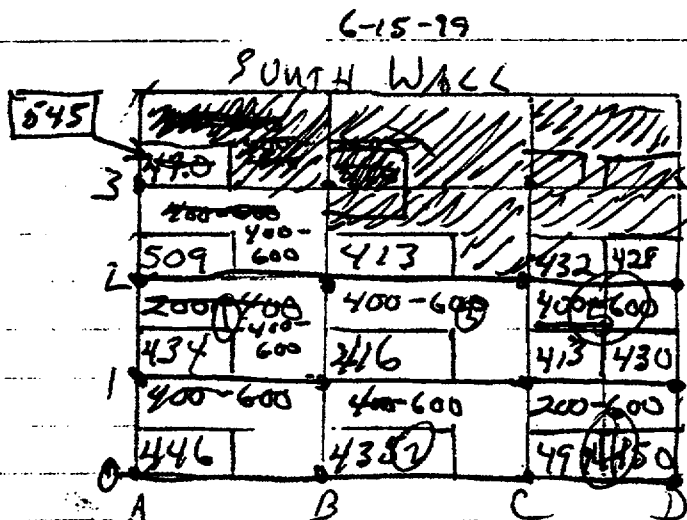 6-15-99
SOUTH WALL
545
3
400-600
400-
600
509 413 432 428
2
400-600 400-600
400-
600
434 416 413 430
1
400-600 400-600 200-600
446 435
0
A B C D